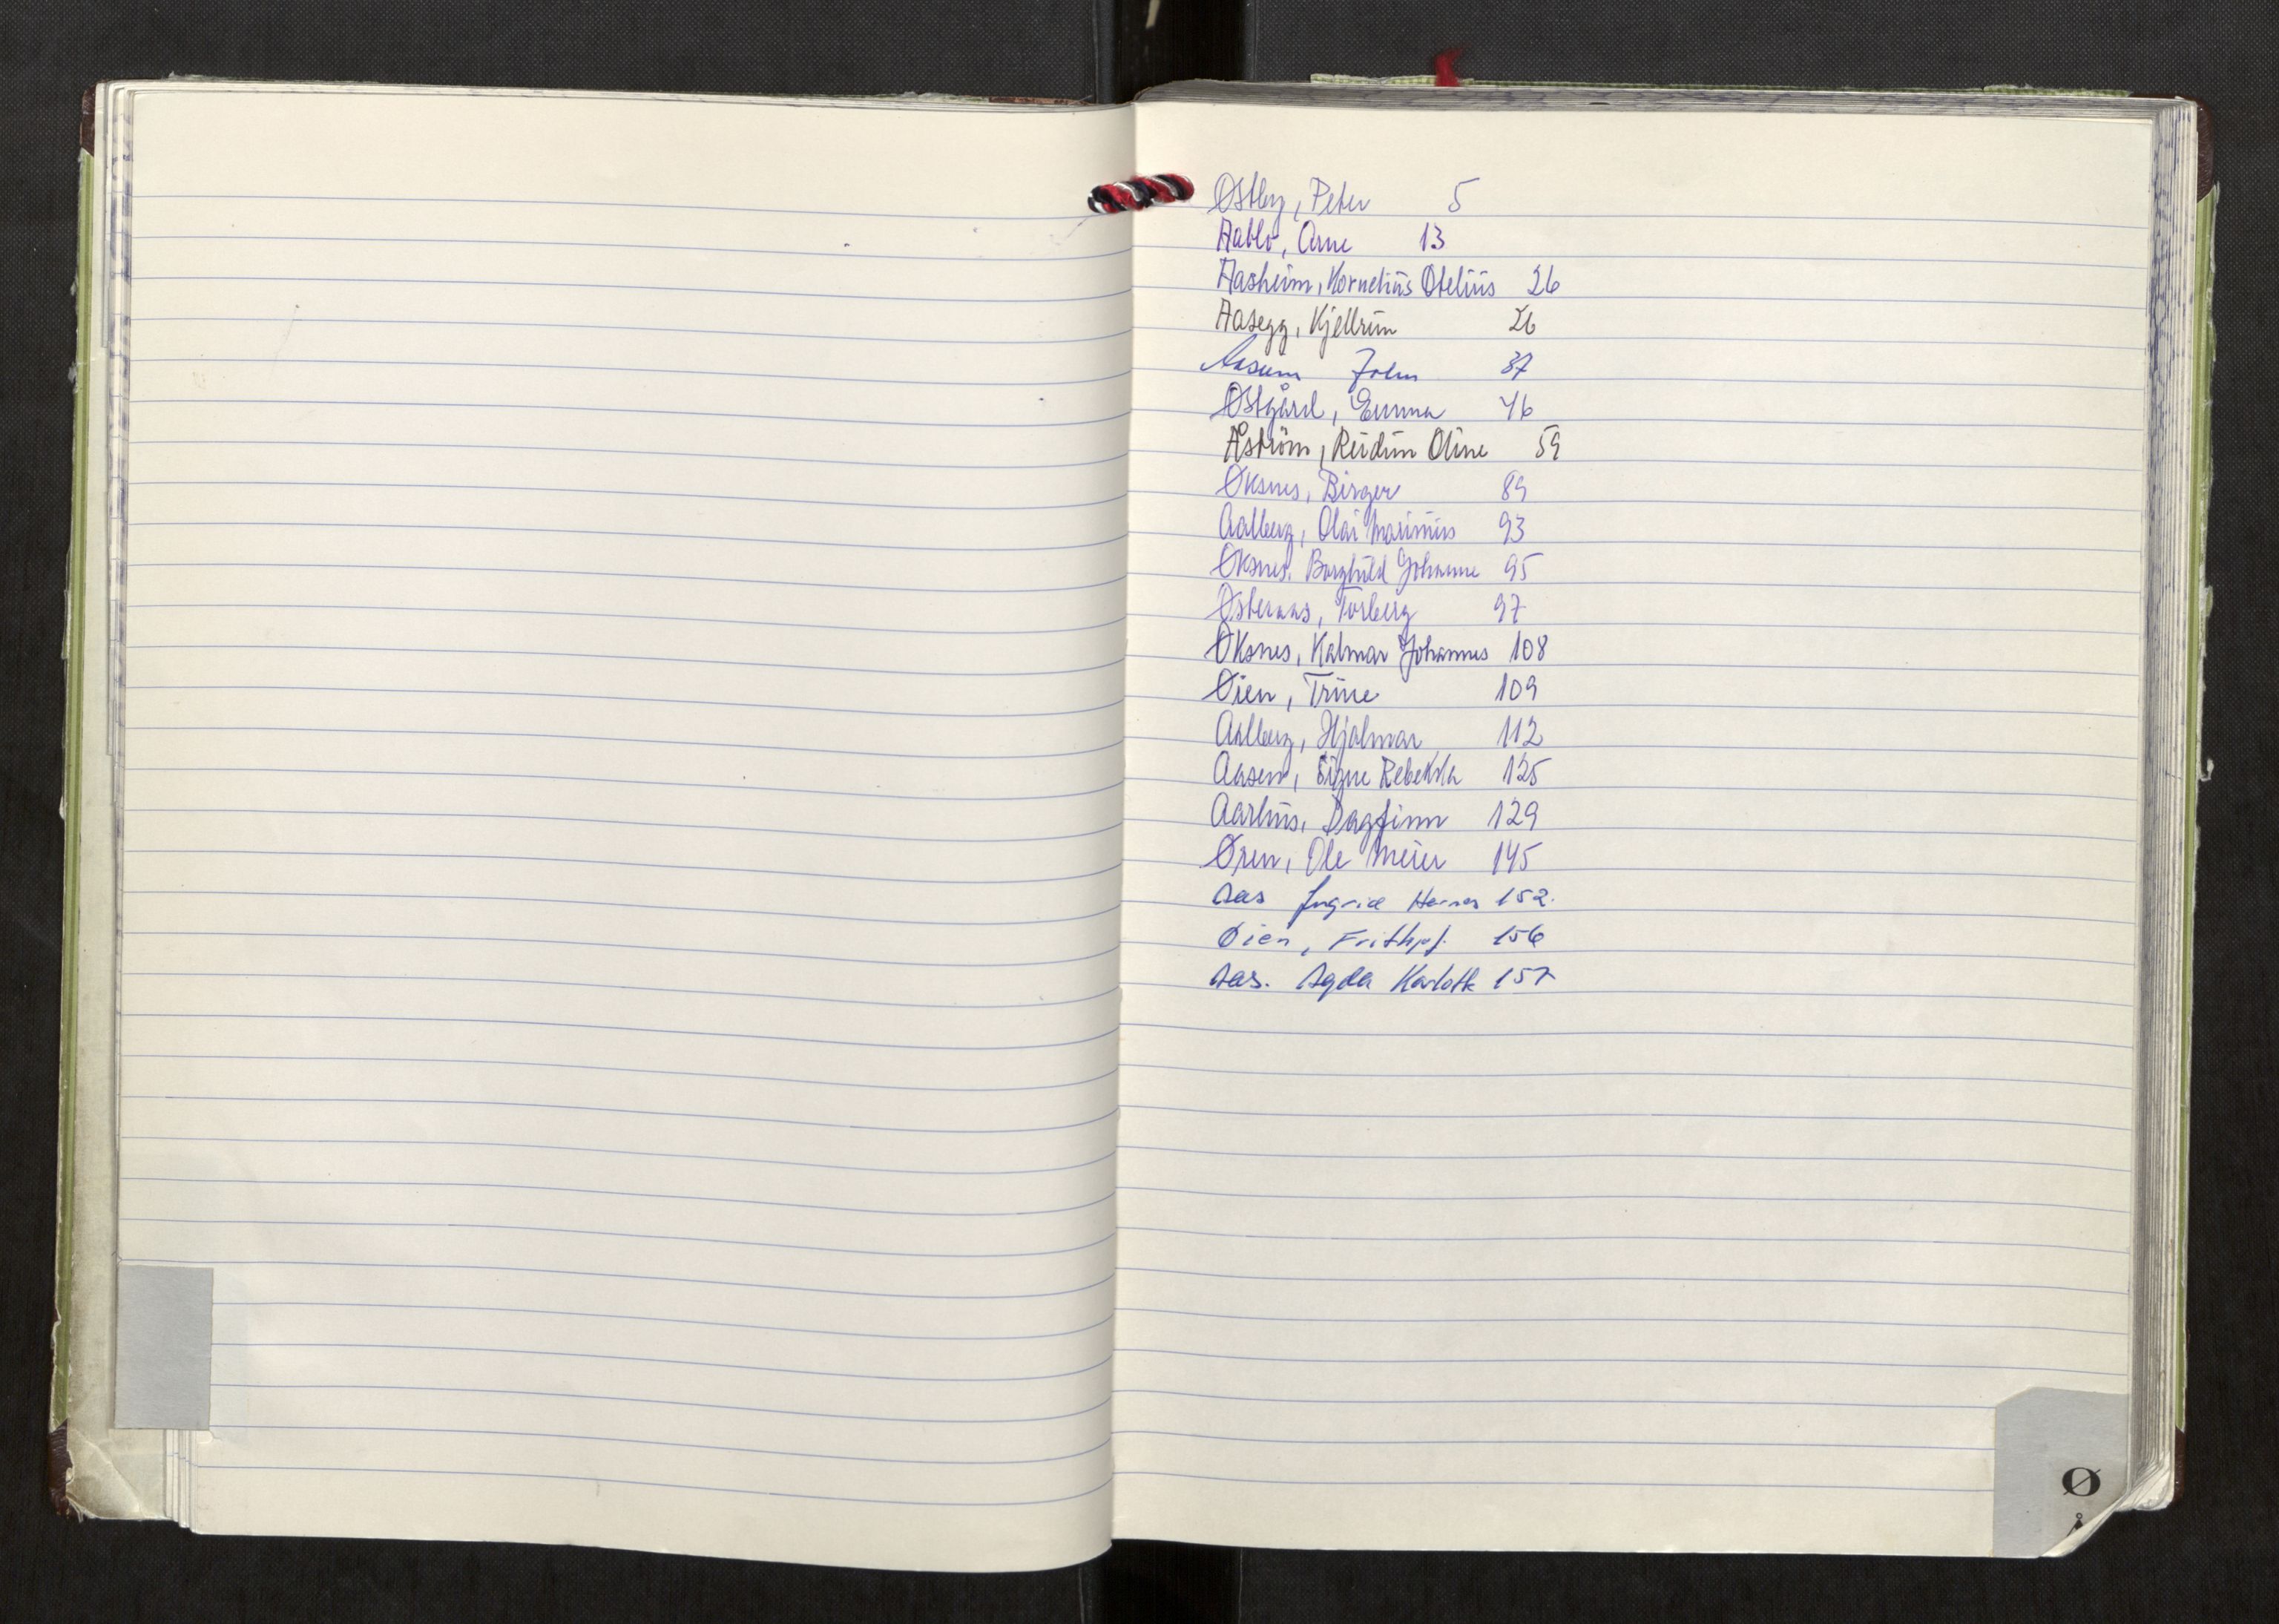 Østby, Peter 5
Aablø, Arne 13
Aasheim, Kornelius Otelius 26
Aasegg, Kjellrun 26
Aasum John 37
Østgård, Emma 46
Åström, Reidun Oline 59
Øksnes, Birger 89
Aalberg, Olai Marinius 93
Øksnes, Borghild Johanne 95
Østeraas, Torberg 97
Øksnes, Kalmar Johannes 108
Øien, Trine 109
Aalberg, Hjalmar 112
Aasen, Signe Rebekka 125
Aarhus, Dagfinn 129
Øren, Ole Meier 145
Aas Ingrid 152.
Øien, Frithjof. 156
Aas. Agda Karlotte 157
Ø
Å